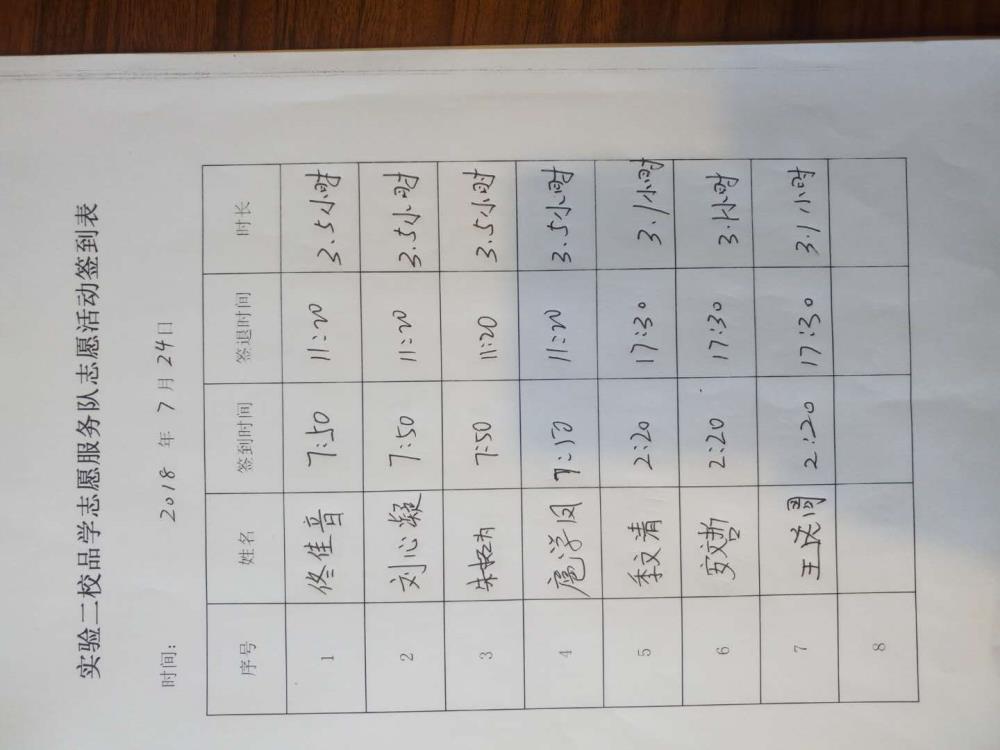 实验二校品学志愿服务队志愿活动签到表
时间: 2018 年 7 月 24 日
序号 姓名 签到时间 签退时间 时长
1 佟佳音 7:50 11:20 3.5小时
2 刘心凝 7:50 11:20 3.5小时
3 7:50 11:20 3.5小时
4 扈学凤 7:50 11:20 3.5小时
5 季文清 2:20 17:30 3.1小时
6 安文哲 2:20 17:30 3.1小时
7 王 2:20 17:30 3.1小时
8